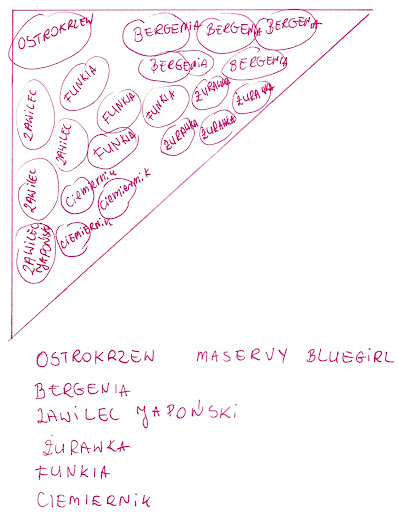 OSTROKRZEW
BERGENIA BERGENIA BERGENIA
BERGENIA BERGENIA
ZAWILEC FUNKIA FUNKIA FUNKIA ŻURAWKA ŻURAWKA
ZAWILEC FUNKIA ŻURAWKA ŻURAWKA
ZAWILEC CIEMIERNIK CIEMIERNIK
ZAWILEC JAPOŃSKI CIEMIERNIK
OSTROKRZEW MASERVY BLUEGIRL
BERGENIA
ZAWILEC JAPOŃSKI
ŻURAWKA
FUNKIA
CIEMIERNIK